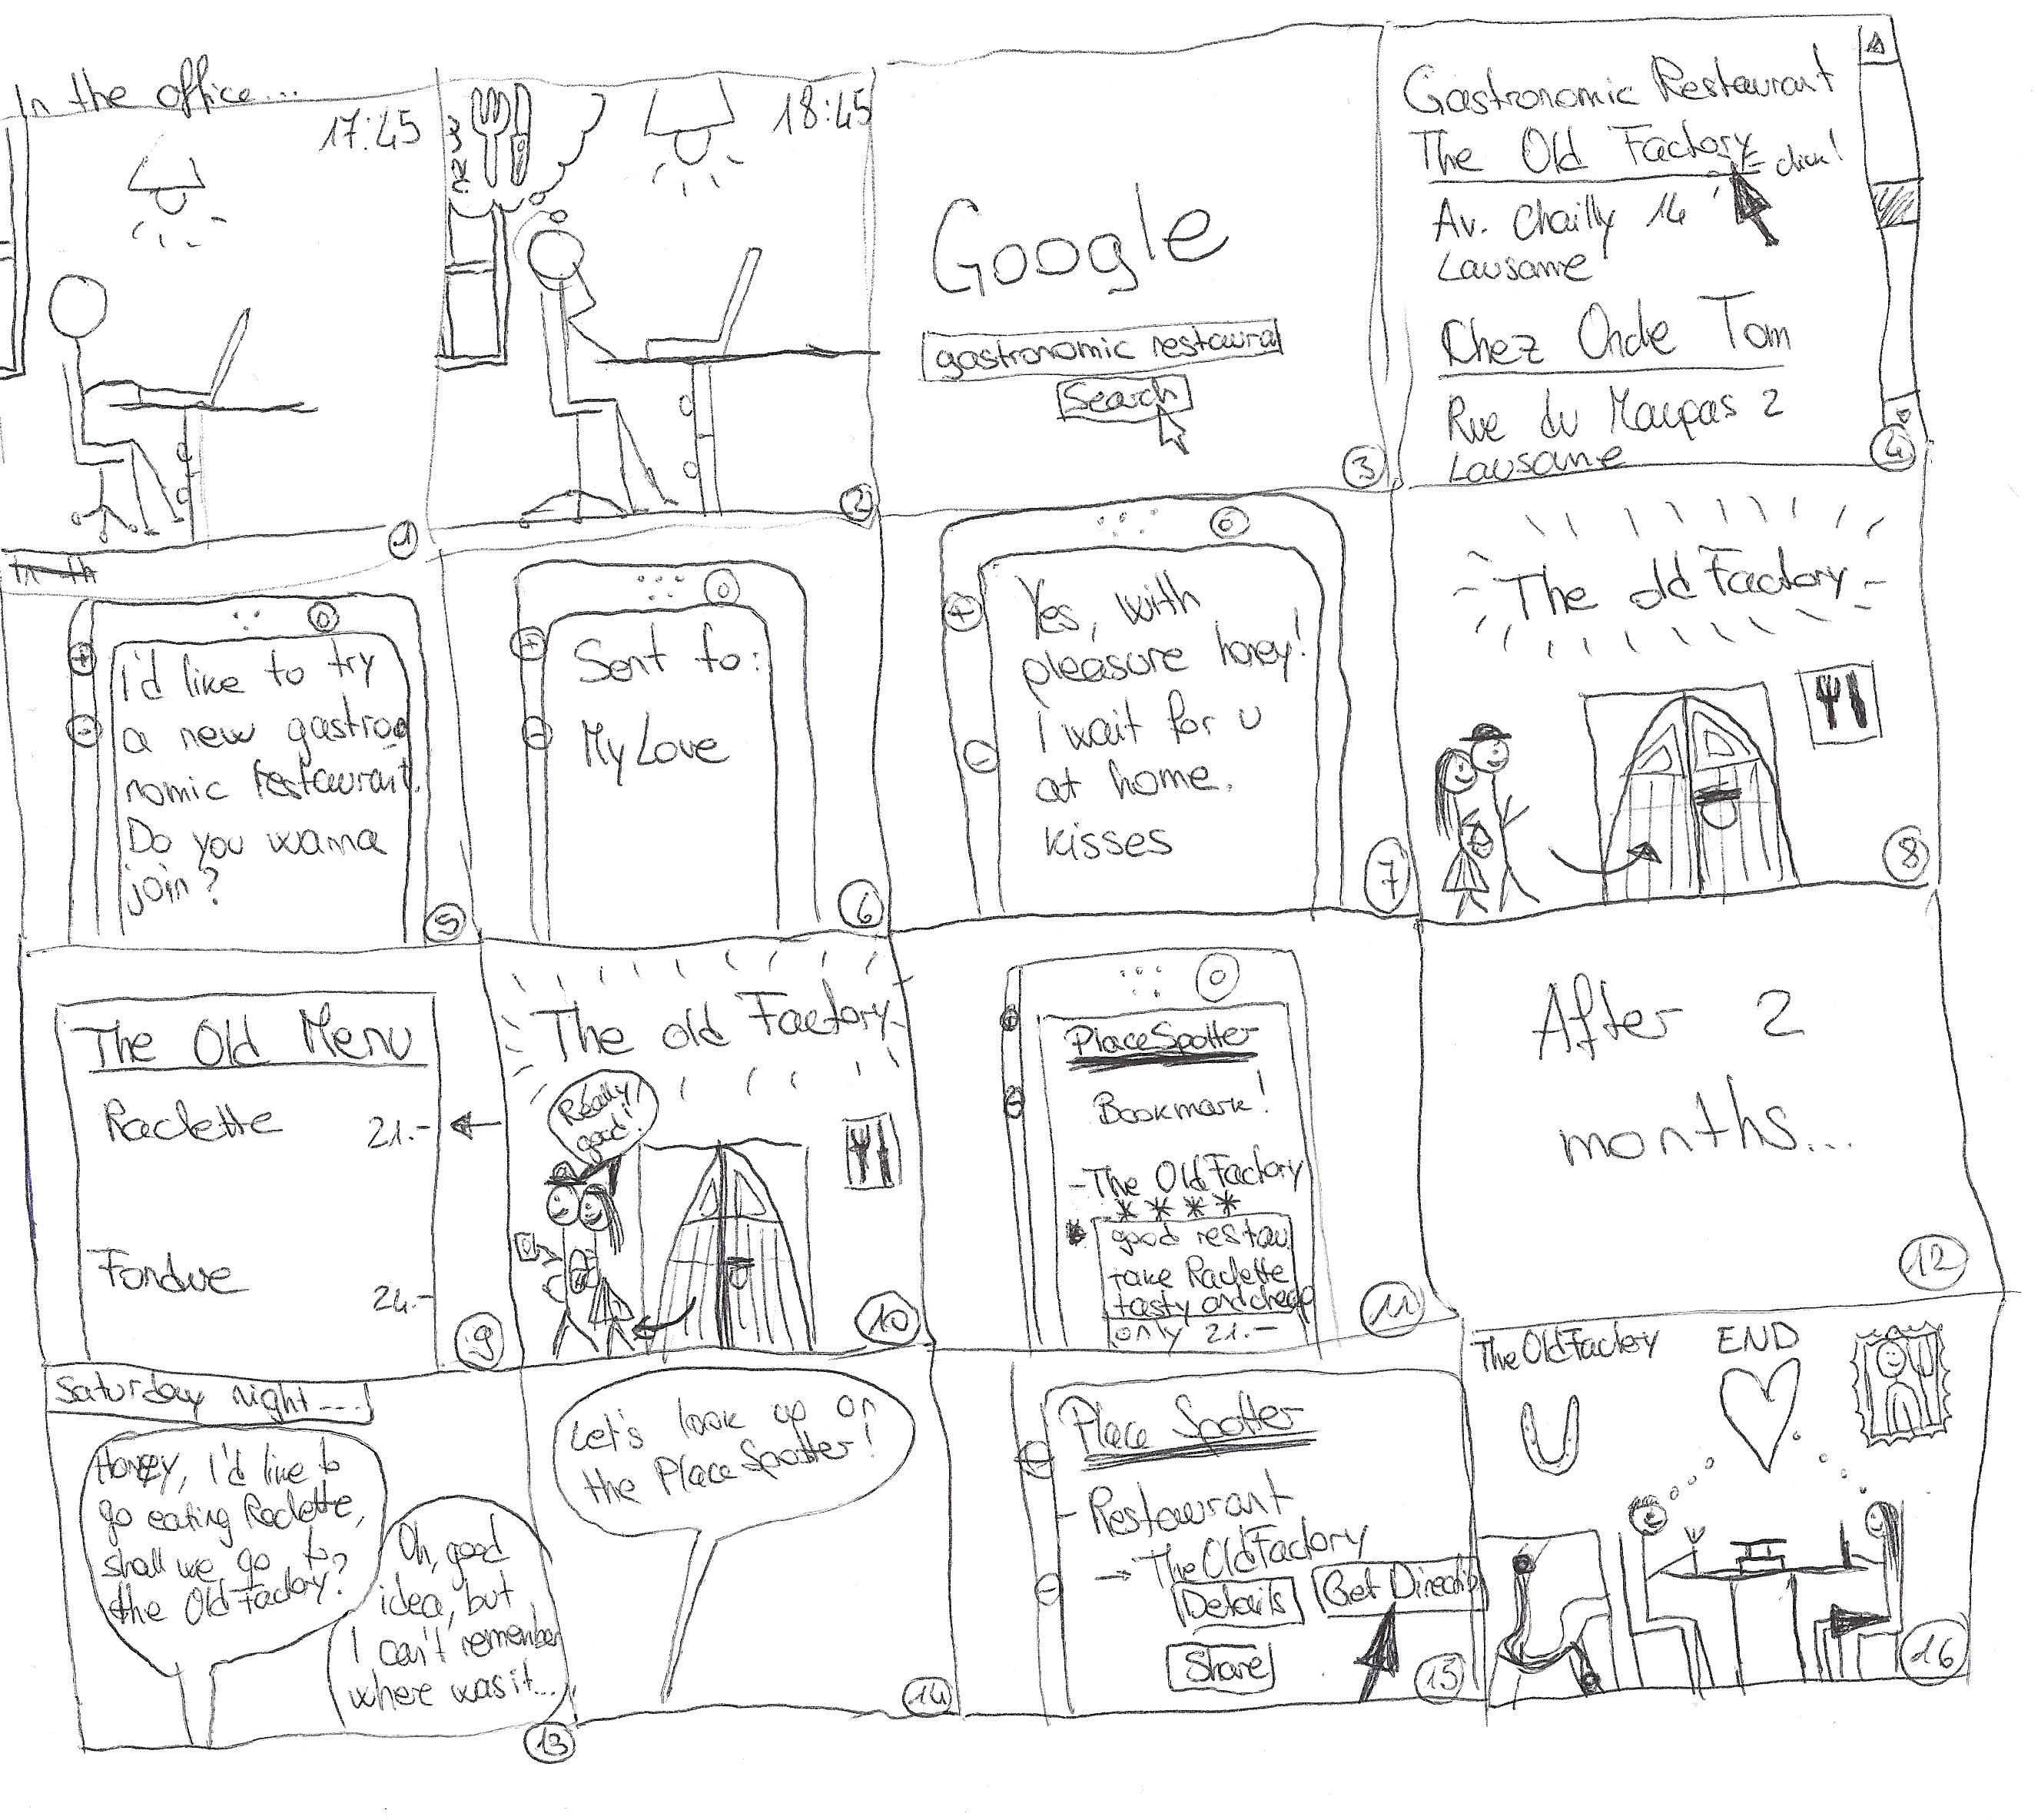 In the office...
17:45
1
18:45
2
Google
gastronomic restaura
Search
3
Gastronomic Restaurant
The Old Factory
click!
Av. Chailly 14
Lausanne
Chez Oncle Tom
Rue du Maupas 2
Lausanne
4
In th
I'd like to try
a new gastro
nomic restaurant.
Do you wanna
join?
5
Sent to:
My Love
6
Yes, with
pleasure honey!
I wait for u
at home.
kisses
7
The old Factory
8
The Old Menu
Raclette 21.-
Fondue 24.-
9
The old Factory
Really
good!
10
PlaceSpotter
Bookmark!
- The Old Factory
* * * *
good restau
take Raclette
tasty and cheap
only 21.-
11
After 2
months...
12
Saturday night...
Honey, I'd like to
go eating Raclette,
shall we go to
the Old Factory?
Oh, good
idea, but
I can't remember
where was it...
13
Let's look up on
the PlaceSpotter!
14
Place Spotter
- Restaurant
→ The Old Factory
Details
Get Directio
Share
15
The Old Factory
END
16